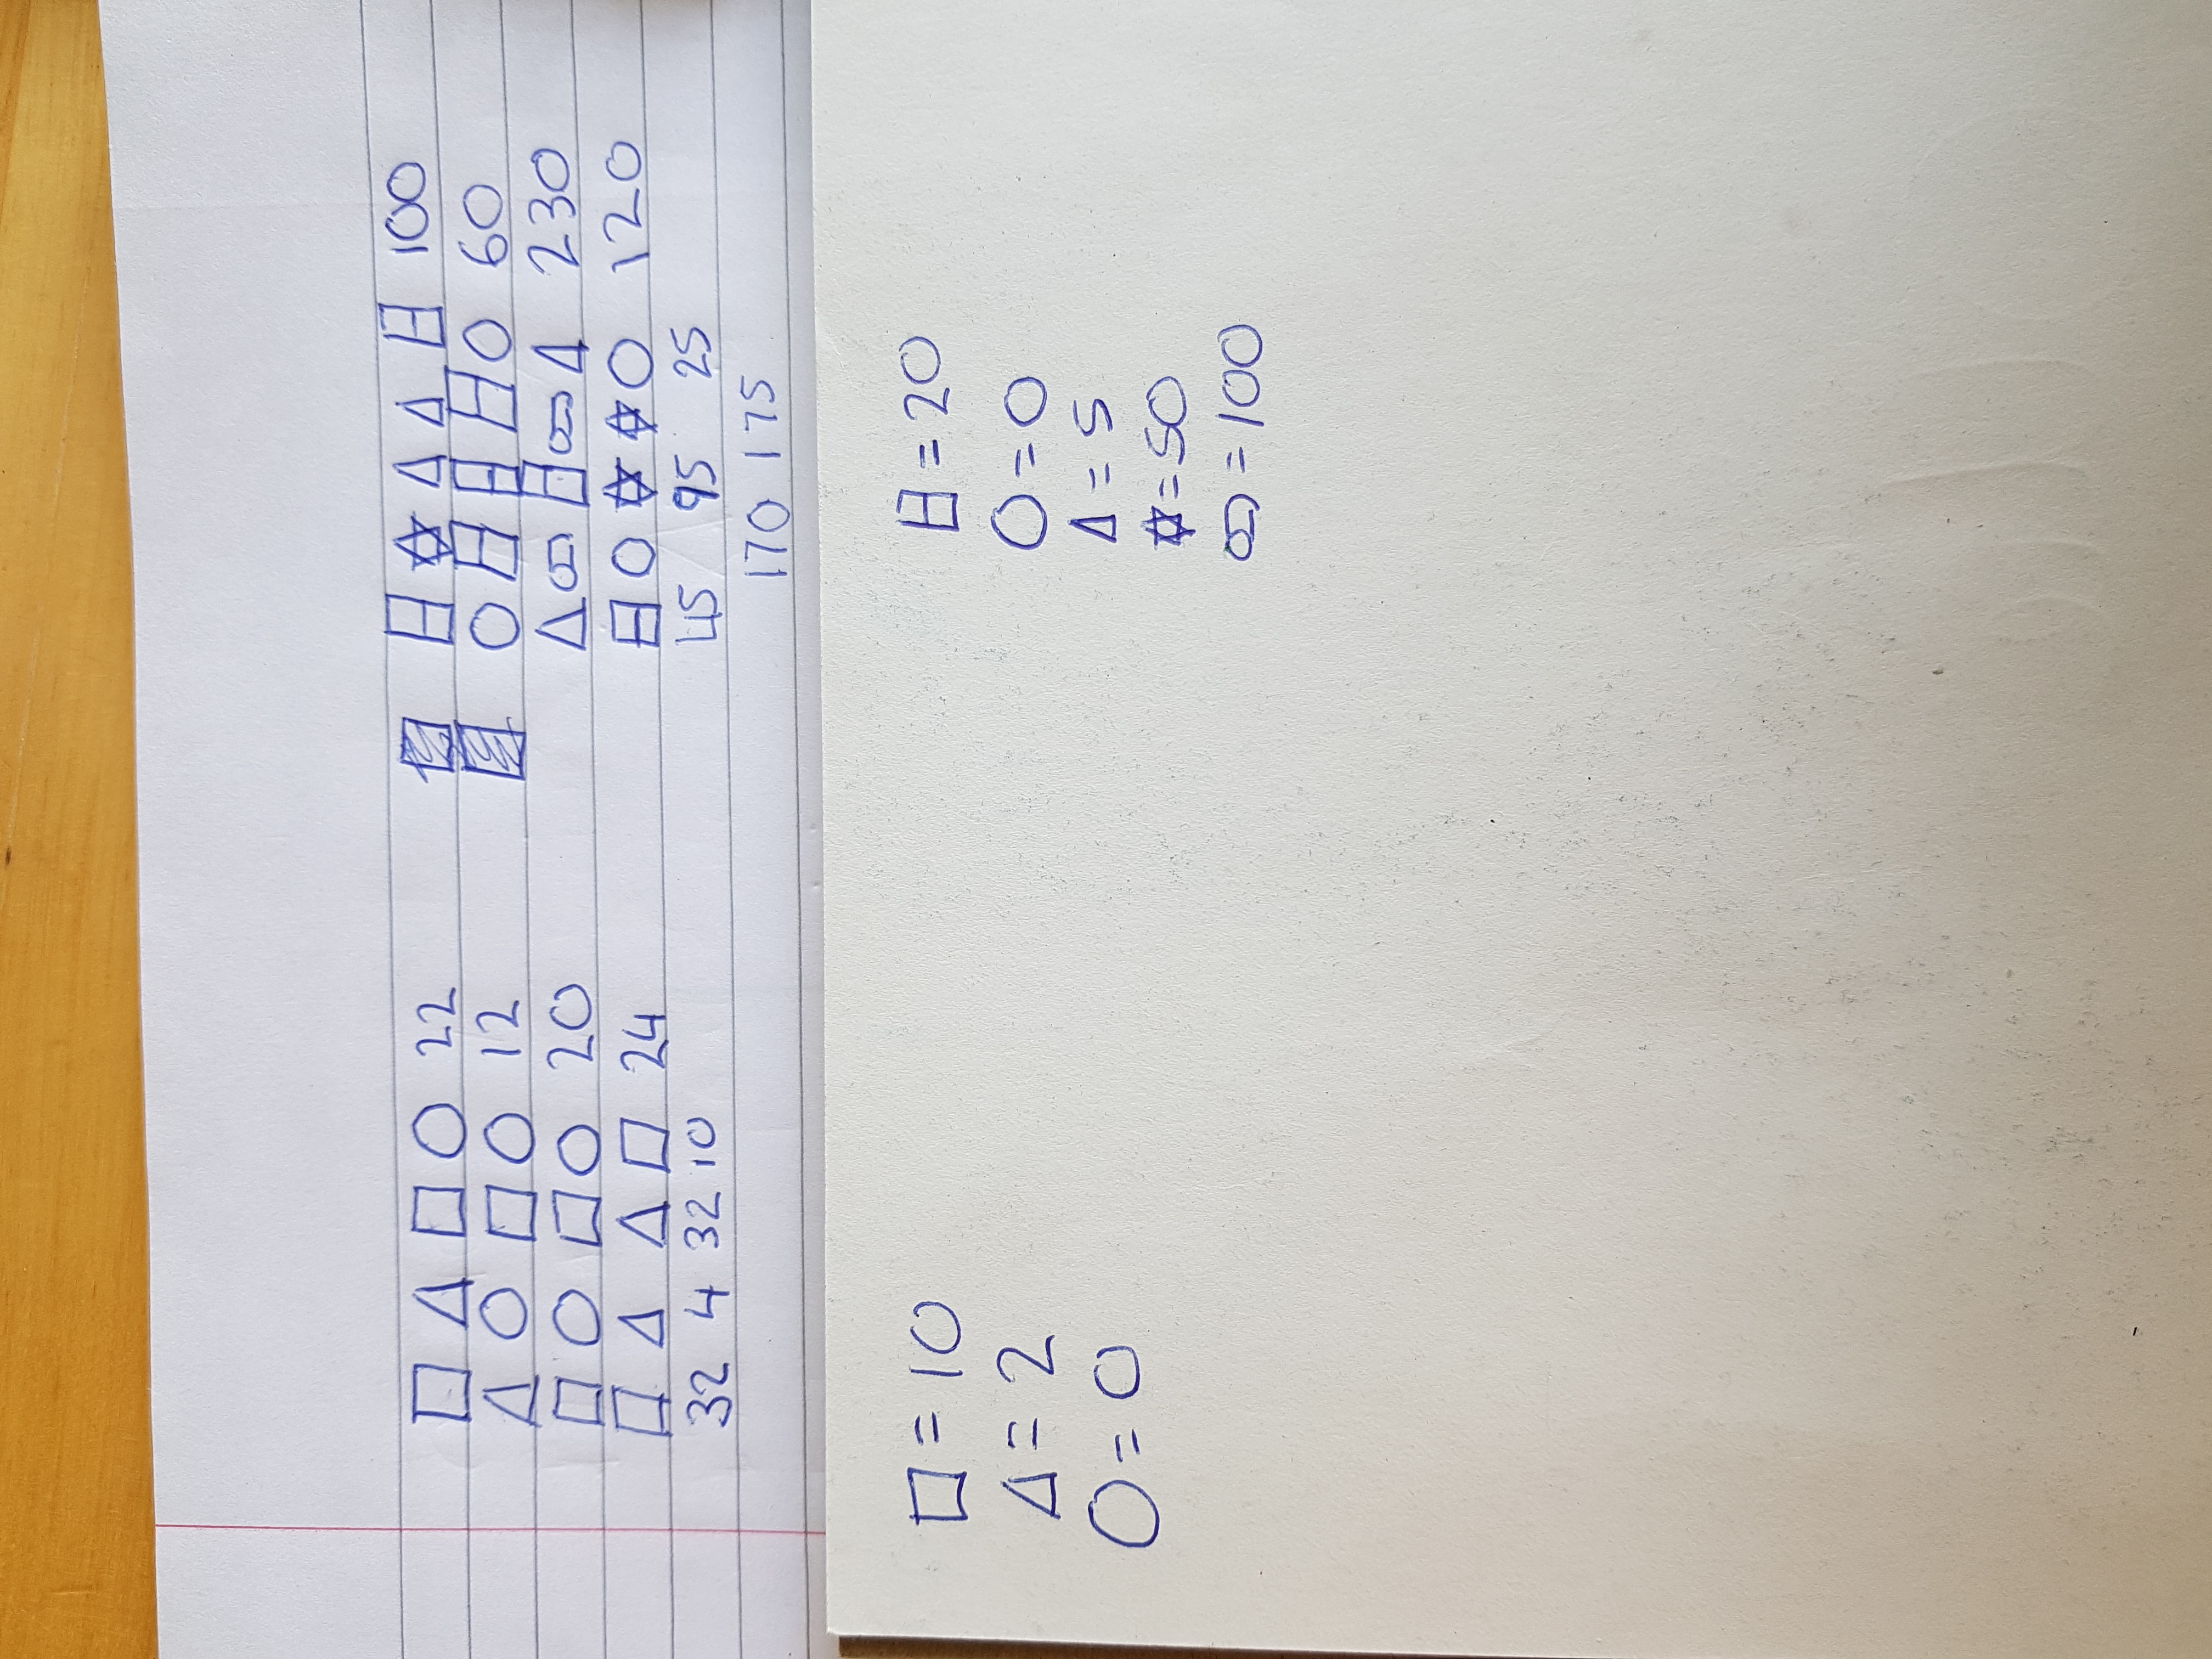 □ △ □ ○ 22 ⊟ ✡ △ △ ⊟ 100
△ ○ □ ○ 12 ○ ⊟ ⊟ ⊟ ○ 60
□ ○ □ ○ 20 △ ∞ ⊟ ∞ △ 230
□ △ △ □ 24 ⊟ ○ ✡ ✡ ○ 120
32 4 32 10 45 95 25
170 175
□ = 10 ⊟ = 20
△ = 2 ○ = 0
○ = 0 △ = 5
✡ = 50
∞ = 100